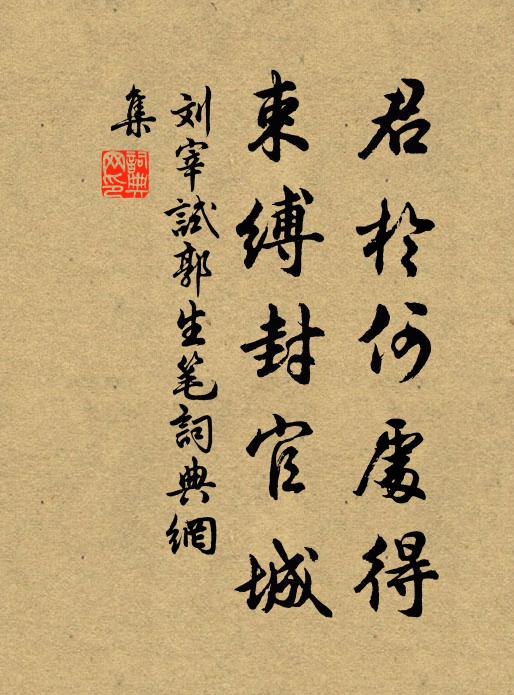 君於何處得
束缚封官城
刘宰試郭生笔詞典網
集
詞典網印